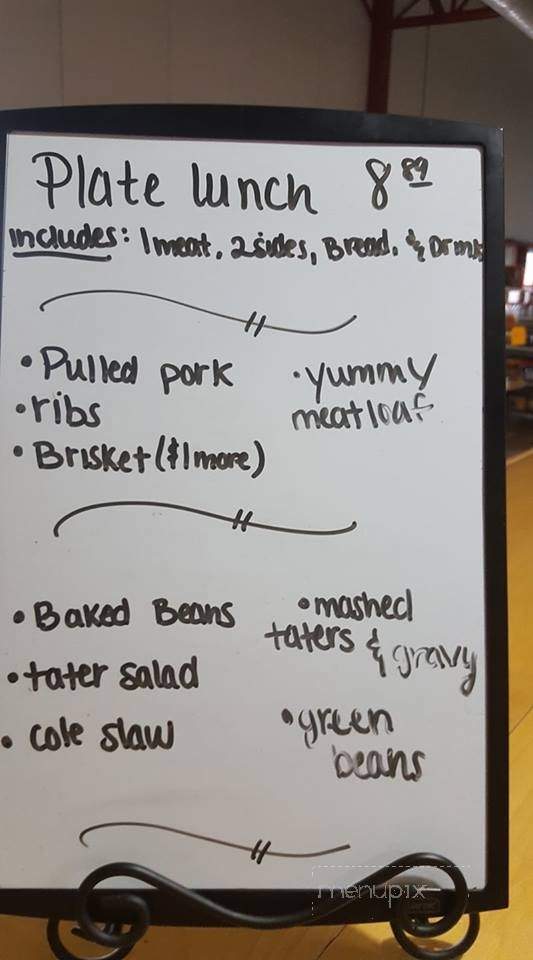 Plate lunch 8 89
includes: 1 meat, 2 sides, Bread, & Drink
• Pulled pork
• ribs
• Brisket ($1 more)
• yummy
meatloaf
• Baked Beans
• tater salad
• cole slaw
• mashed
taters & gravy
• green
beans
menupix